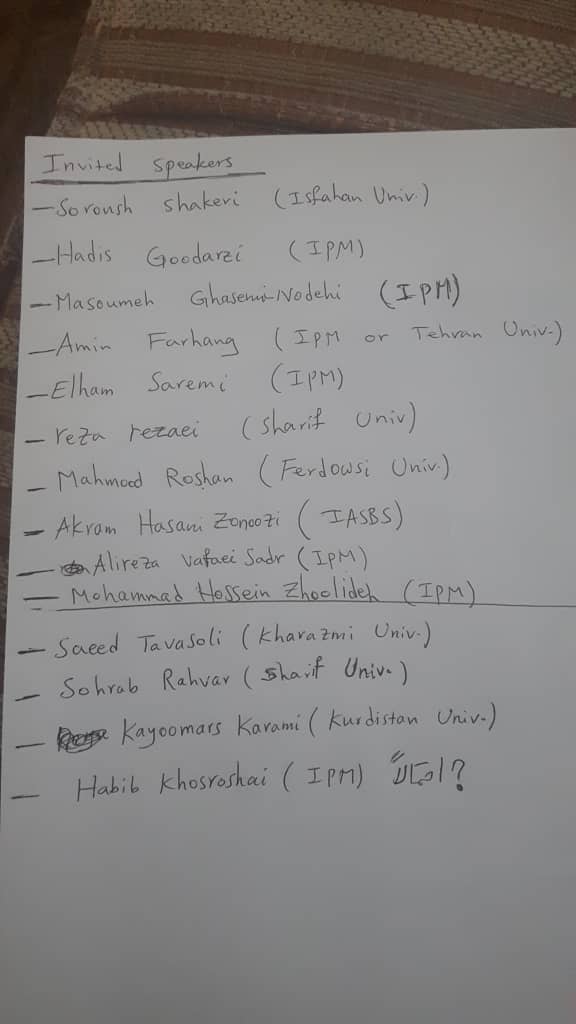 Invited speakers
- Soroush shakeri (Isfahan Univ.)
- Hadis Goodarzi (IPM)
- Masoumeh Ghasemi-Nodehi (IPM)
- Amin Farhang (IPM or Tehran Univ.)
- Elham Saremi (IPM)
- reza rezaei (sharif univ)
- Mahmood Roshan (Ferdowsi Univ.)
- Akram Hasani Zonoozi (IASBS)
- Alireza Vafaei Sadr (IPM)
- Mohammad Hossein Zhoolideh (IPM)
- Saeed Tavasoli (Kharazmi Univ.)
- Sohrab Rahvar (Sharif Univ.)
- Kayoomars Karami (Kurdistan Univ.)
- Habib Khosroshai (IPM) ?